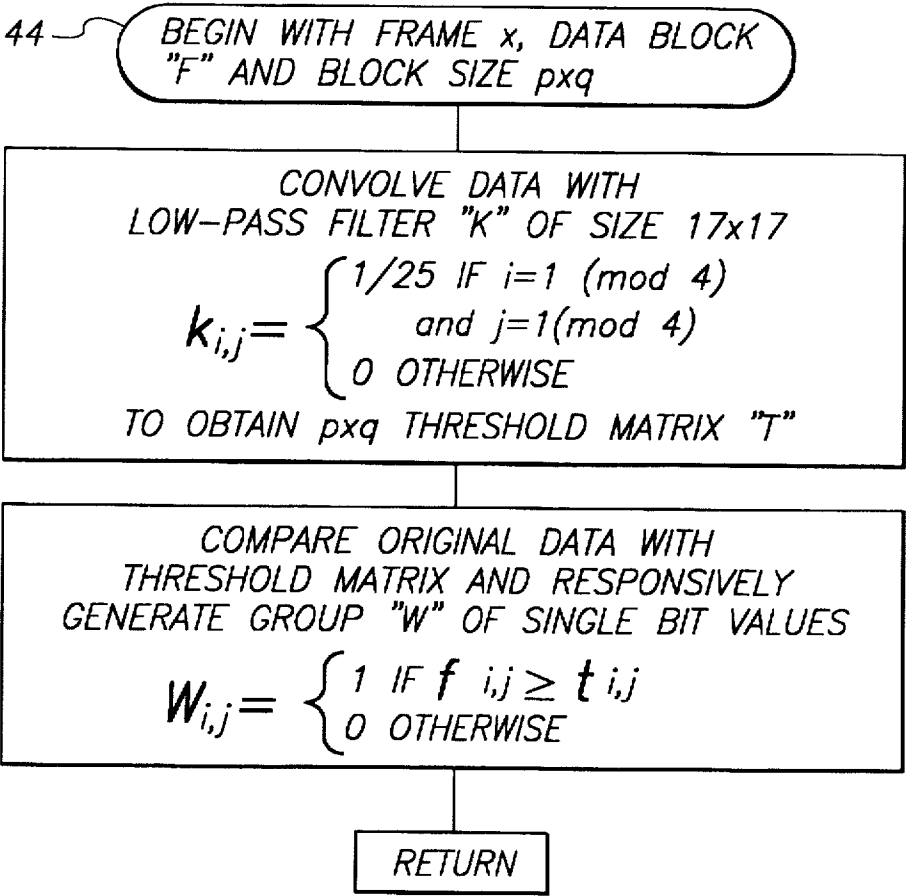 44
BEGIN WITH FRAME x, DATA BLOCK
"F" AND BLOCK SIZE pxq
CONVOLVE DATA WITH
LOW-PASS FILTER "K" OF SIZE 17x17
k i,j = { 1/25 IF i=1 (mod 4)
and j=1(mod 4)
0 OTHERWISE
TO OBTAIN pxq THRESHOLD MATRIX "T"
COMPARE ORIGINAL DATA WITH
THRESHOLD MATRIX AND RESPONSIVELY
GENERATE GROUP "W" OF SINGLE BIT VALUES
W i,j = { 1 IF f i,j ≥ t i,j
0 OTHERWISE
RETURN